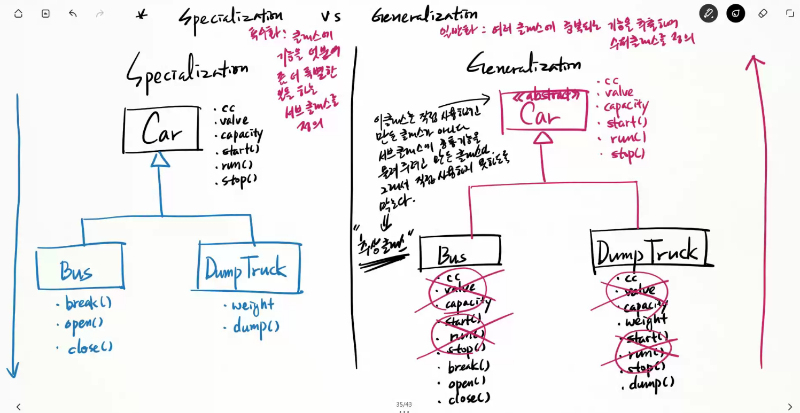 * Specialization vs Generalization
특수화 : 클래스에
기능을 덧붙여
좀 더 특별한
일을 하는
서브 클래스로
정의
일반화 : 여러 클래스에 중복되는 기능을 추출하여
수퍼클래스로 정의
Specialization
Car
· cc
· value
· capacity
· start()
· run()
· stop()
Bus
· break()
· open()
· close()
DumpTruck
· weight
· dump()
Generalization
<<abstract>>
Car
· cc
· value
· capacity
· start()
· run()
· stop()
이 클래스는 직접 사용하려고
만든 클래스가 아니다
서브 클래스에 공통 기능을
물려주려고 만든 클래스다.
그래서 직접 사용하지 못하도록
막는다.
"추상클래스"
Bus
· cc
· value
· capacity
· start()
· run()
· stop()
· break()
· open()
· close()
DumpTruck
· cc
· value
· capacity
· weight
· start()
· run()
· stop()
· dump()
35/43